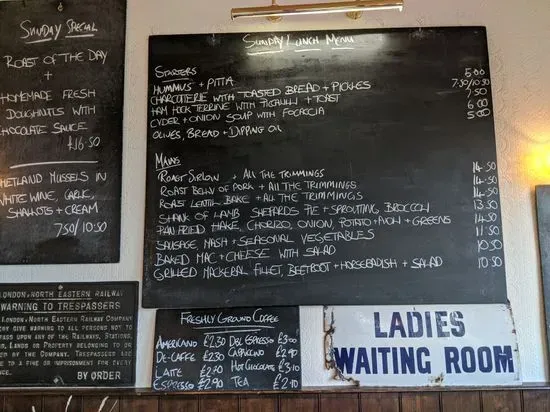 SUNDAY SPECIAL
ROAST OF THE DAY
+
HOMEMADE FRESH
DOUGHNUTS WITH
CHOCOLATE SAUCE
£16.50
SHETLAND MUSSELS IN
WHITE WINE, GARLIC,
SHALLOTS + CREAM
7.50/10.50
SUNDAY LUNCH MENU
STARTERS
HUMMUS + PITTA 5.00
CHARCUTERIE WITH TOASTED BREAD + PICKLES 7.50/10.50
HAM HOCK TERRINE WITH PICALILLI + TOAST 7.50
CYDER + ONION SOUP WITH FOCACCIA 6.00
OLIVES, BREAD + DIPPING OIL 5.00
MAINS
ROAST SIRLOIN + ALL THE TRIMMINGS 14.50
ROAST BELLY OF PORK + ALL THE TRIMMINGS 14.50
ROAST LENTIL BAKE + ALL THE TRIMMINGS 14.50
SHANK OF LAMB SHEPARDS PIE + SPROUTING BROCCOLI 13.50
PAN FRIED HAKE, CHORIZO, ONION, POTATO + GREENS 14.50
SAUSAGE, MASH + SEASONAL VEGETABLES 11.50
BAKED MAC + CHEESE WITH SALAD 10.50
GRILLED MACKERAL FILLET, BEETROOT + HORSERADISH + SALAD 10.50
LONDON & NORTH EASTERN RAILWAY
WARNING TO TRESPASSERS
LONDON & NORTH EASTERN RAILWAY COMPANY
GIVE WARNING TO ALL PERSONS NOT TO
PASS UPON ANY OF THE RAILWAYS, STATIONS,
LANDS OR PROPERTY BELONGING TO OR
BY THE COMPANY. TRESPASSERS ARE
TO A FINE OR IMPRISONMENT FOR EVERY
BY ORDER
FRESHLY GROUND COFFEE
AMERICANO £2.30 DBL ESPRESSO £3.00
DE-CAFFE £2.30 CAPPUCINO £2.90
LATTE £2.90 HOT CHOCOLATE £3.10
ESPRESSO £2.90 TEA £2.10
LADIES
WAITING ROOM